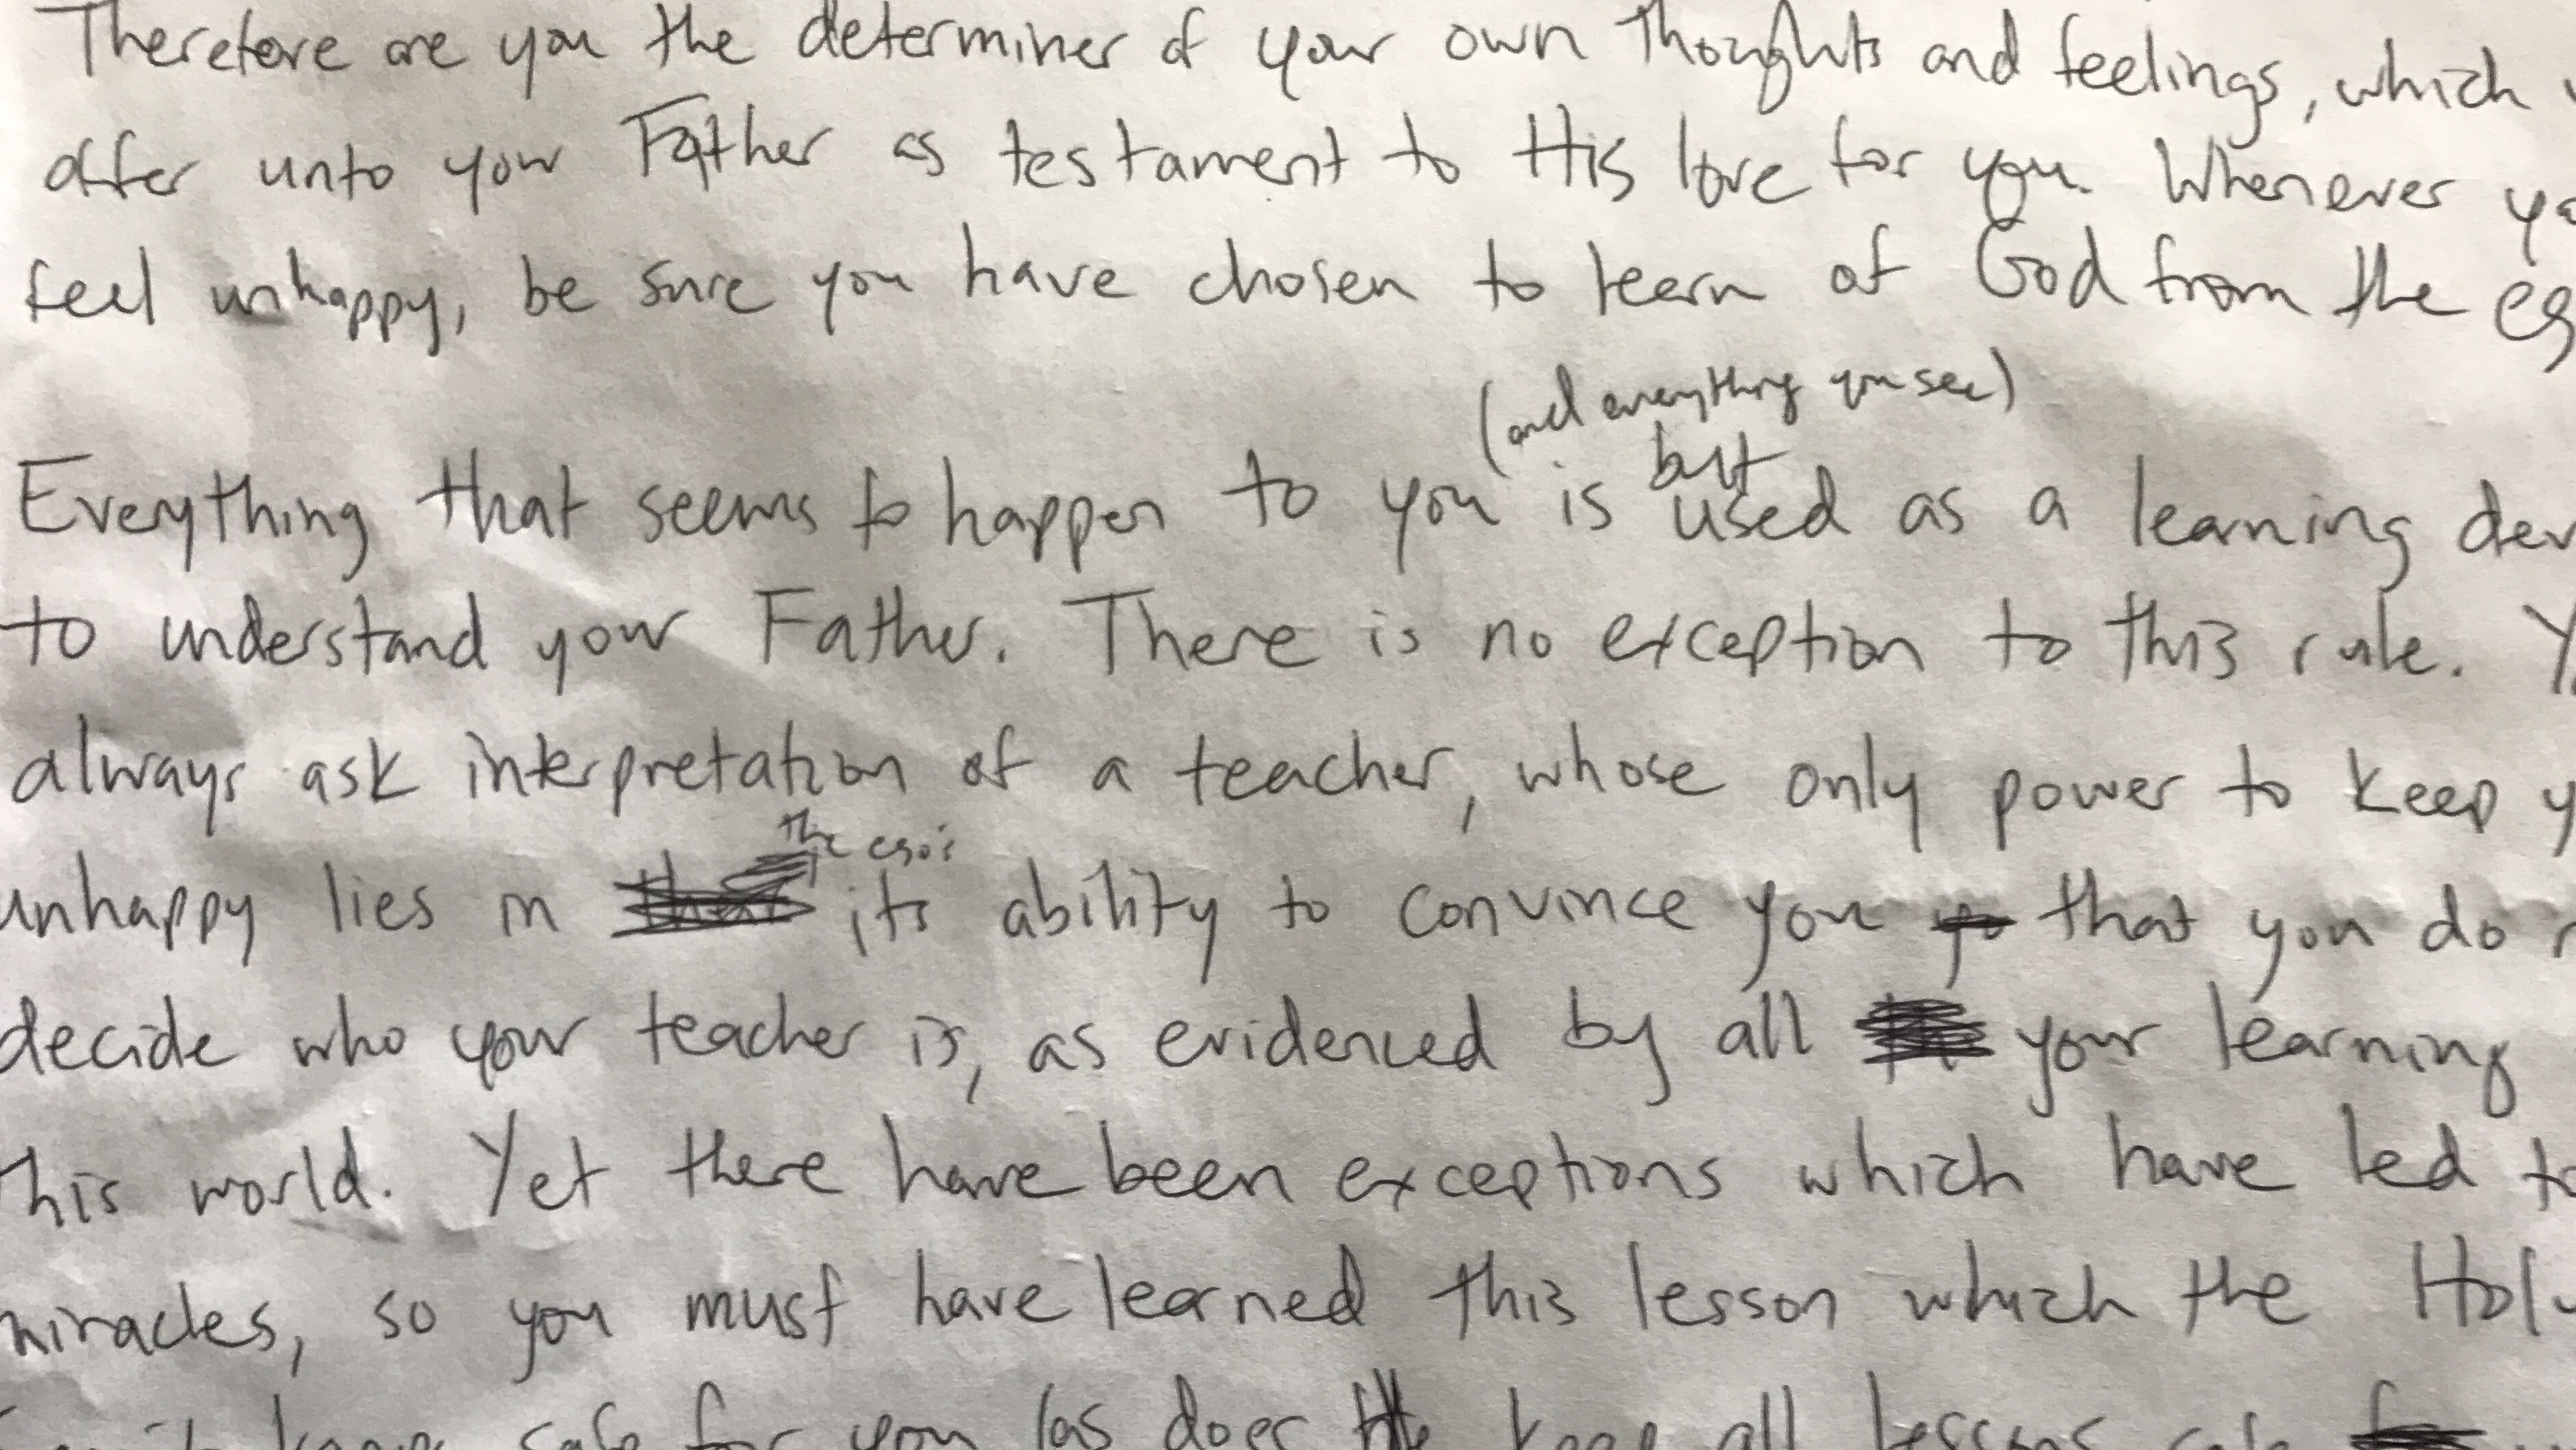 Therefore are you the determiner of your own thoughts and feelings, which
offer unto your Father as testament to His love for you. Whenever
feel unhappy, be sure you have chosen to learn of God from the
(and everything you see)
but
Everything that seems to happen to you is used as a learning
to understand your Father. There is no exception to this rule.
always ask interpretation of a teacher, whose only power to keep
the ego's
unhappy lies in its ability to convince you that you do
decide who your teacher is, as evidenced by all your learning
this world. Yet there have been exceptions which have led
miracles, so you must have learned this lesson which the
safe for you (as does He keep all lessons safe